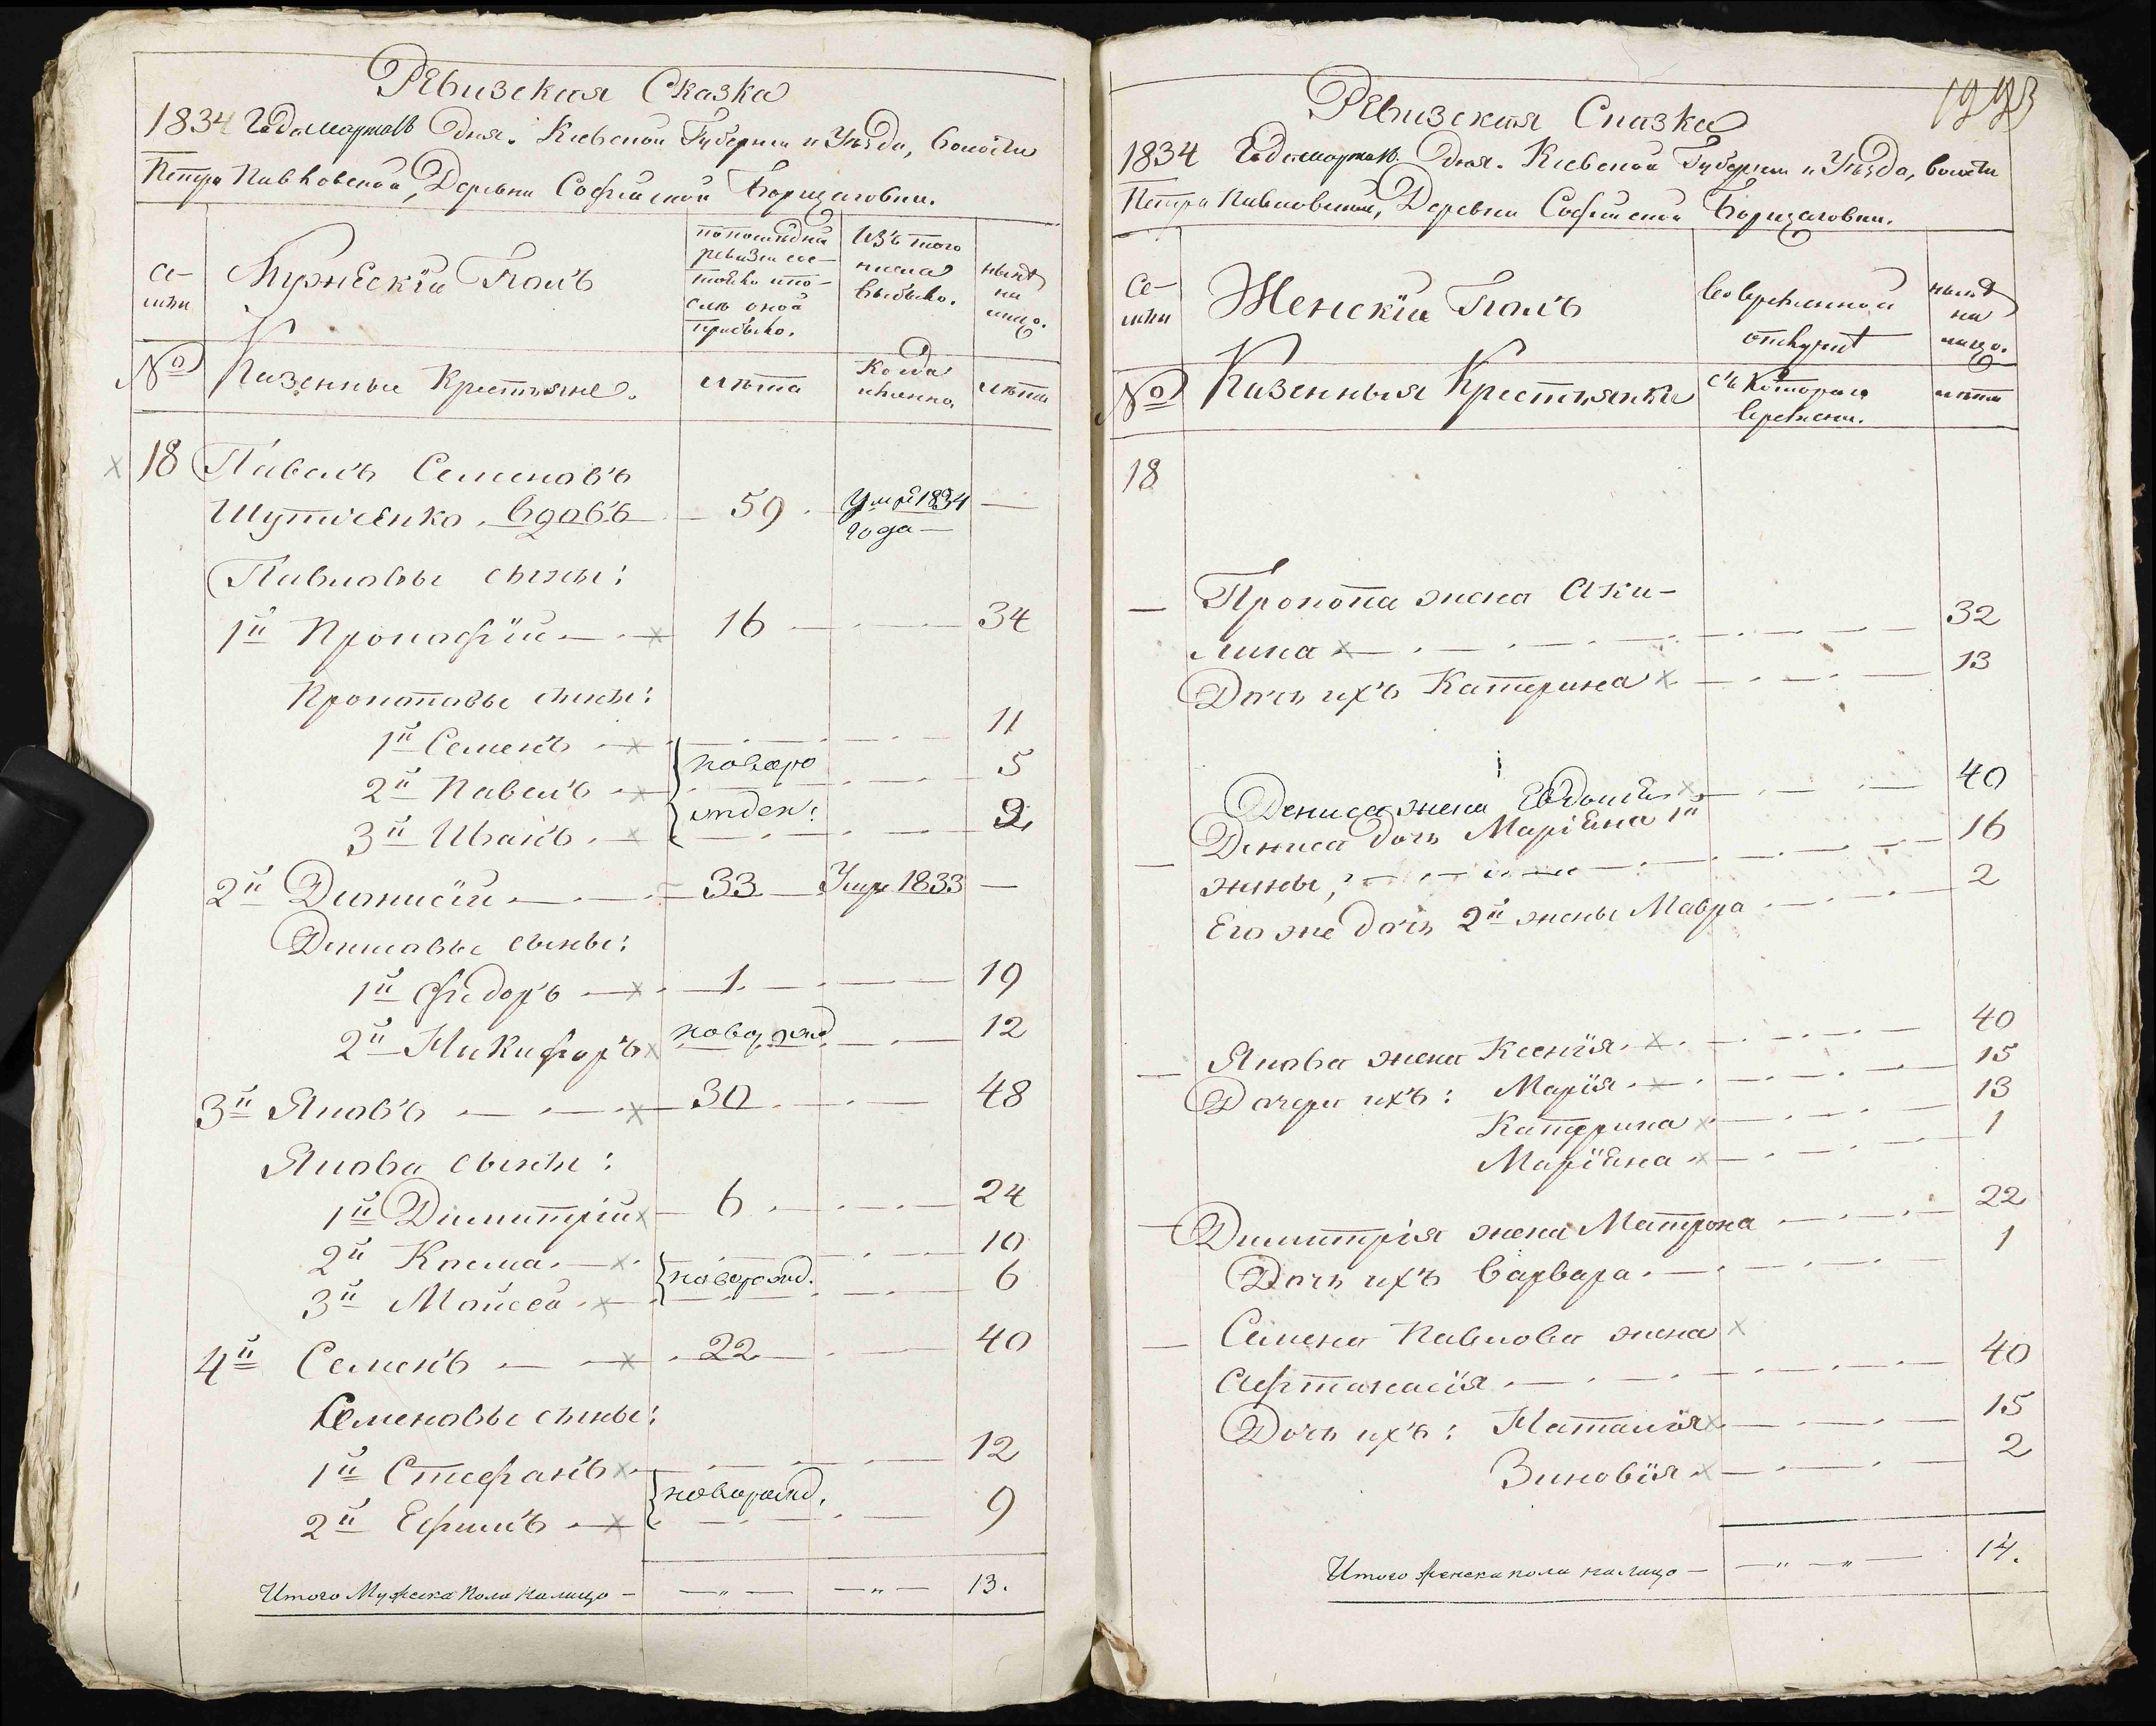 Ревизская Сказка
1834 Года марта дня. Киевской Губернии и Уезда, волости
Петро Павловской, Деревни Софийской Борщаговки.
се-
мьи
Мужеский Полъ
по последней
ревизии сос-
тояло и по-
сле оной
прибыло.
Изъ того
числа
выбыло.
ныне
на
лицо.
№
Казенные Крестьяне.
лета
Когда
именно
лета
18 Павелъ Семеновъ
Шутченко, вдовъ — 59 Умре 1834 —
года —
Павловы сыны:
1й Прокофий — 16 — 34
Прокоповы сыны:
1й Семенъ — 11
2й Павелъ — новоро 5
3й Иванъ — жден: 2
2й Дионисий — 33 — Умре 1833 —
Денисовы сыны:
1й Федоръ — 1 — 19
2й Никифоръ новорожд 12
3й Яковъ — 30 — 48
Якова сыны:
1й Димитрий — 6 — 24
2й Косма — 10
3й Моисей новорожд. 6
4й Семенъ — 22 — 40
Семеновы сыны:
1й Стефанъ — 12
2й Ефимъ новорожд. 9
Итого Мужеска пола налицо — — „ — — „ — 13.
Ревизская Сказка
1834 Года марта дня. Киевской Губернии и Уезда, волости
Петро Павловской, Деревни Софийской Борщаговки.
се-
мьи
Женский Полъ
во временной
отлучке
ныне
на
лицо.
№
Казенныя Крестьянки
съ котораго
времени.
лета
18
— Прокопа жена Аки-
лина — 32
Дочь ихъ Катерина — 13
Дениса жена Евдокия — 40
Дениса дочь Мариана 1й
жены, — 16
Его же дочь 2й жены Мавра — 2
— Якова жена Ксения — 40
Дочери ихъ: Мария — 15
Катерина — 13
Мариана — 1
— Димитрия жена Матрона — 22
Дочь ихъ Варвара — 1
— Семена Павлова жена
Афтанасия — 40
Дочь ихъ: Наталия — 15
Зиновия — 2
Итого женска пола налицо — — „ — „ — 14.